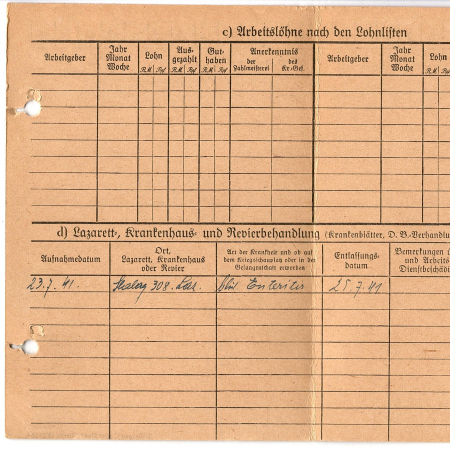 c) Arbeitslöhne nach den Lohnlisten
Arbeitgeber Jahr Monat Woche Lohn Aus- gezahlt Gut- haben Anerkenntnis Arbeitgeber Jahr Monat Woche Lohn
RM Pf RM Pf RM Pf der Zahlmeisterei des Kr.-Gef. RM Pf
d) Lazarett-, Krankenhaus- und Revierbehandlung (Krankenblätter, D. B.-Verhandlu
Aufnahmedatum Ort, Lazarett, Krankenhaus oder Revier Art der Krankheit und ob auf dem Kriegsschauplatz oder in der Gefangenschaft erworben Entlassungs- datum Bemerkungen ü und Arbeits Dienstbeschädi
23.7.41. Stalag 308. Laz. Enteritis 25.7.41